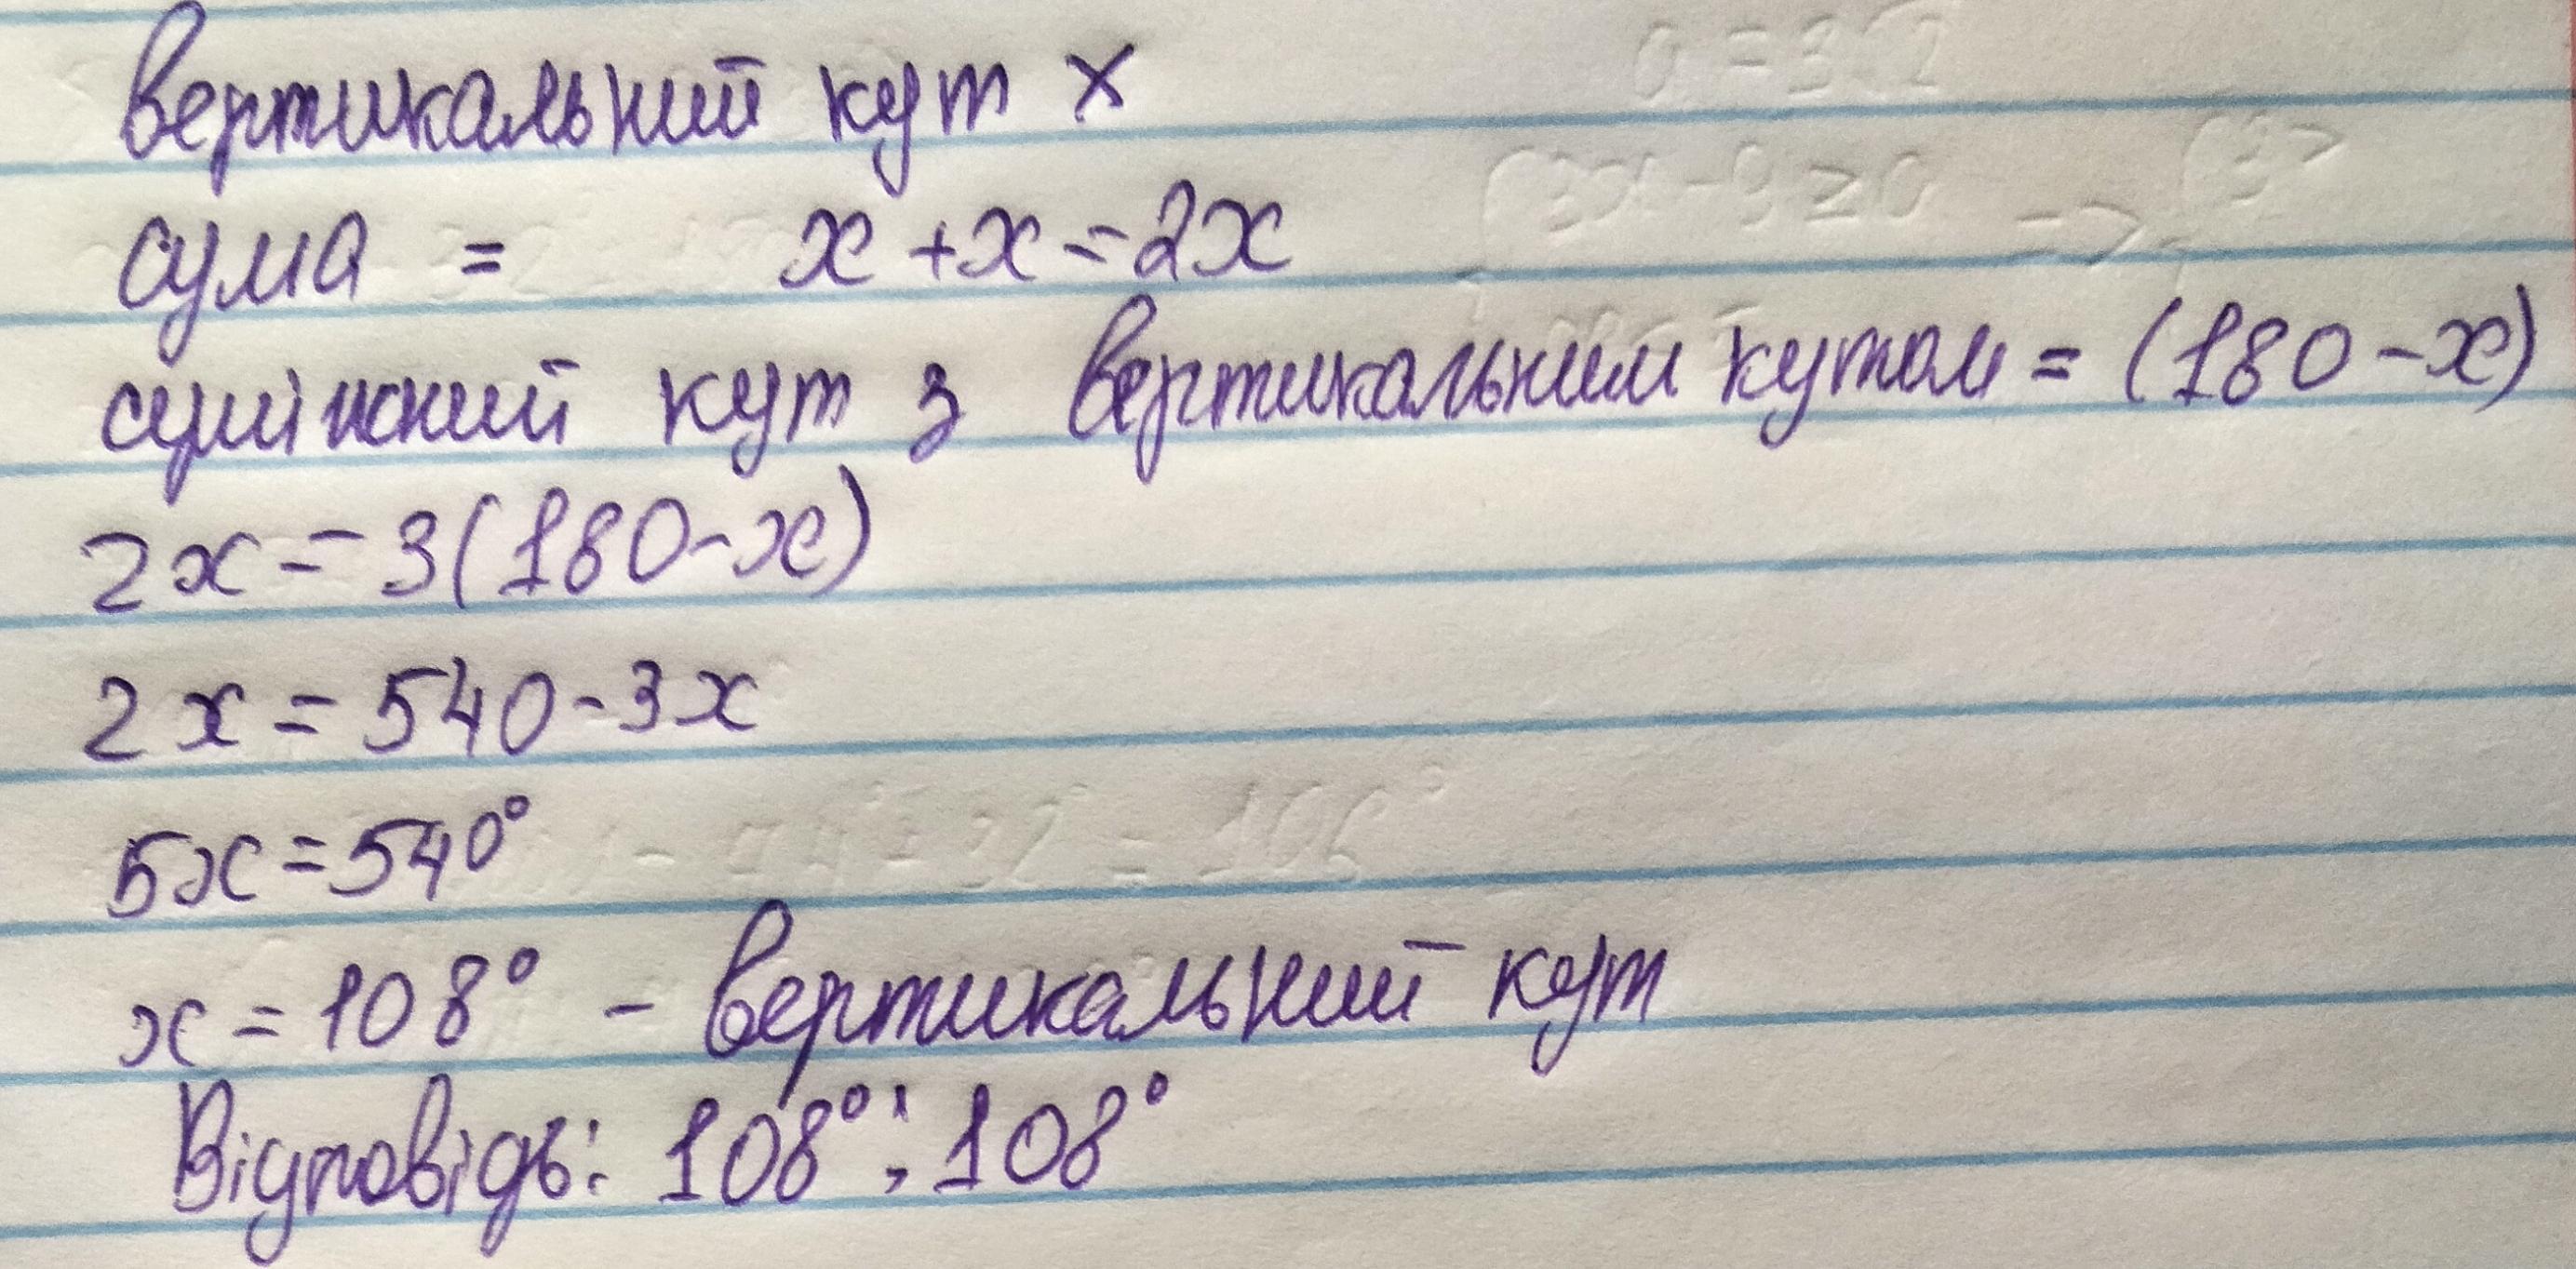 вертикальний кут x
сума = x + x = 2x
суміжний кут з вертикальним кутом = (180 - x)
2x = 3(180 - x)
2x = 540 - 3x
5x = 540°
x = 108° - вертикальний кут
Відповідь: 108°; 108°